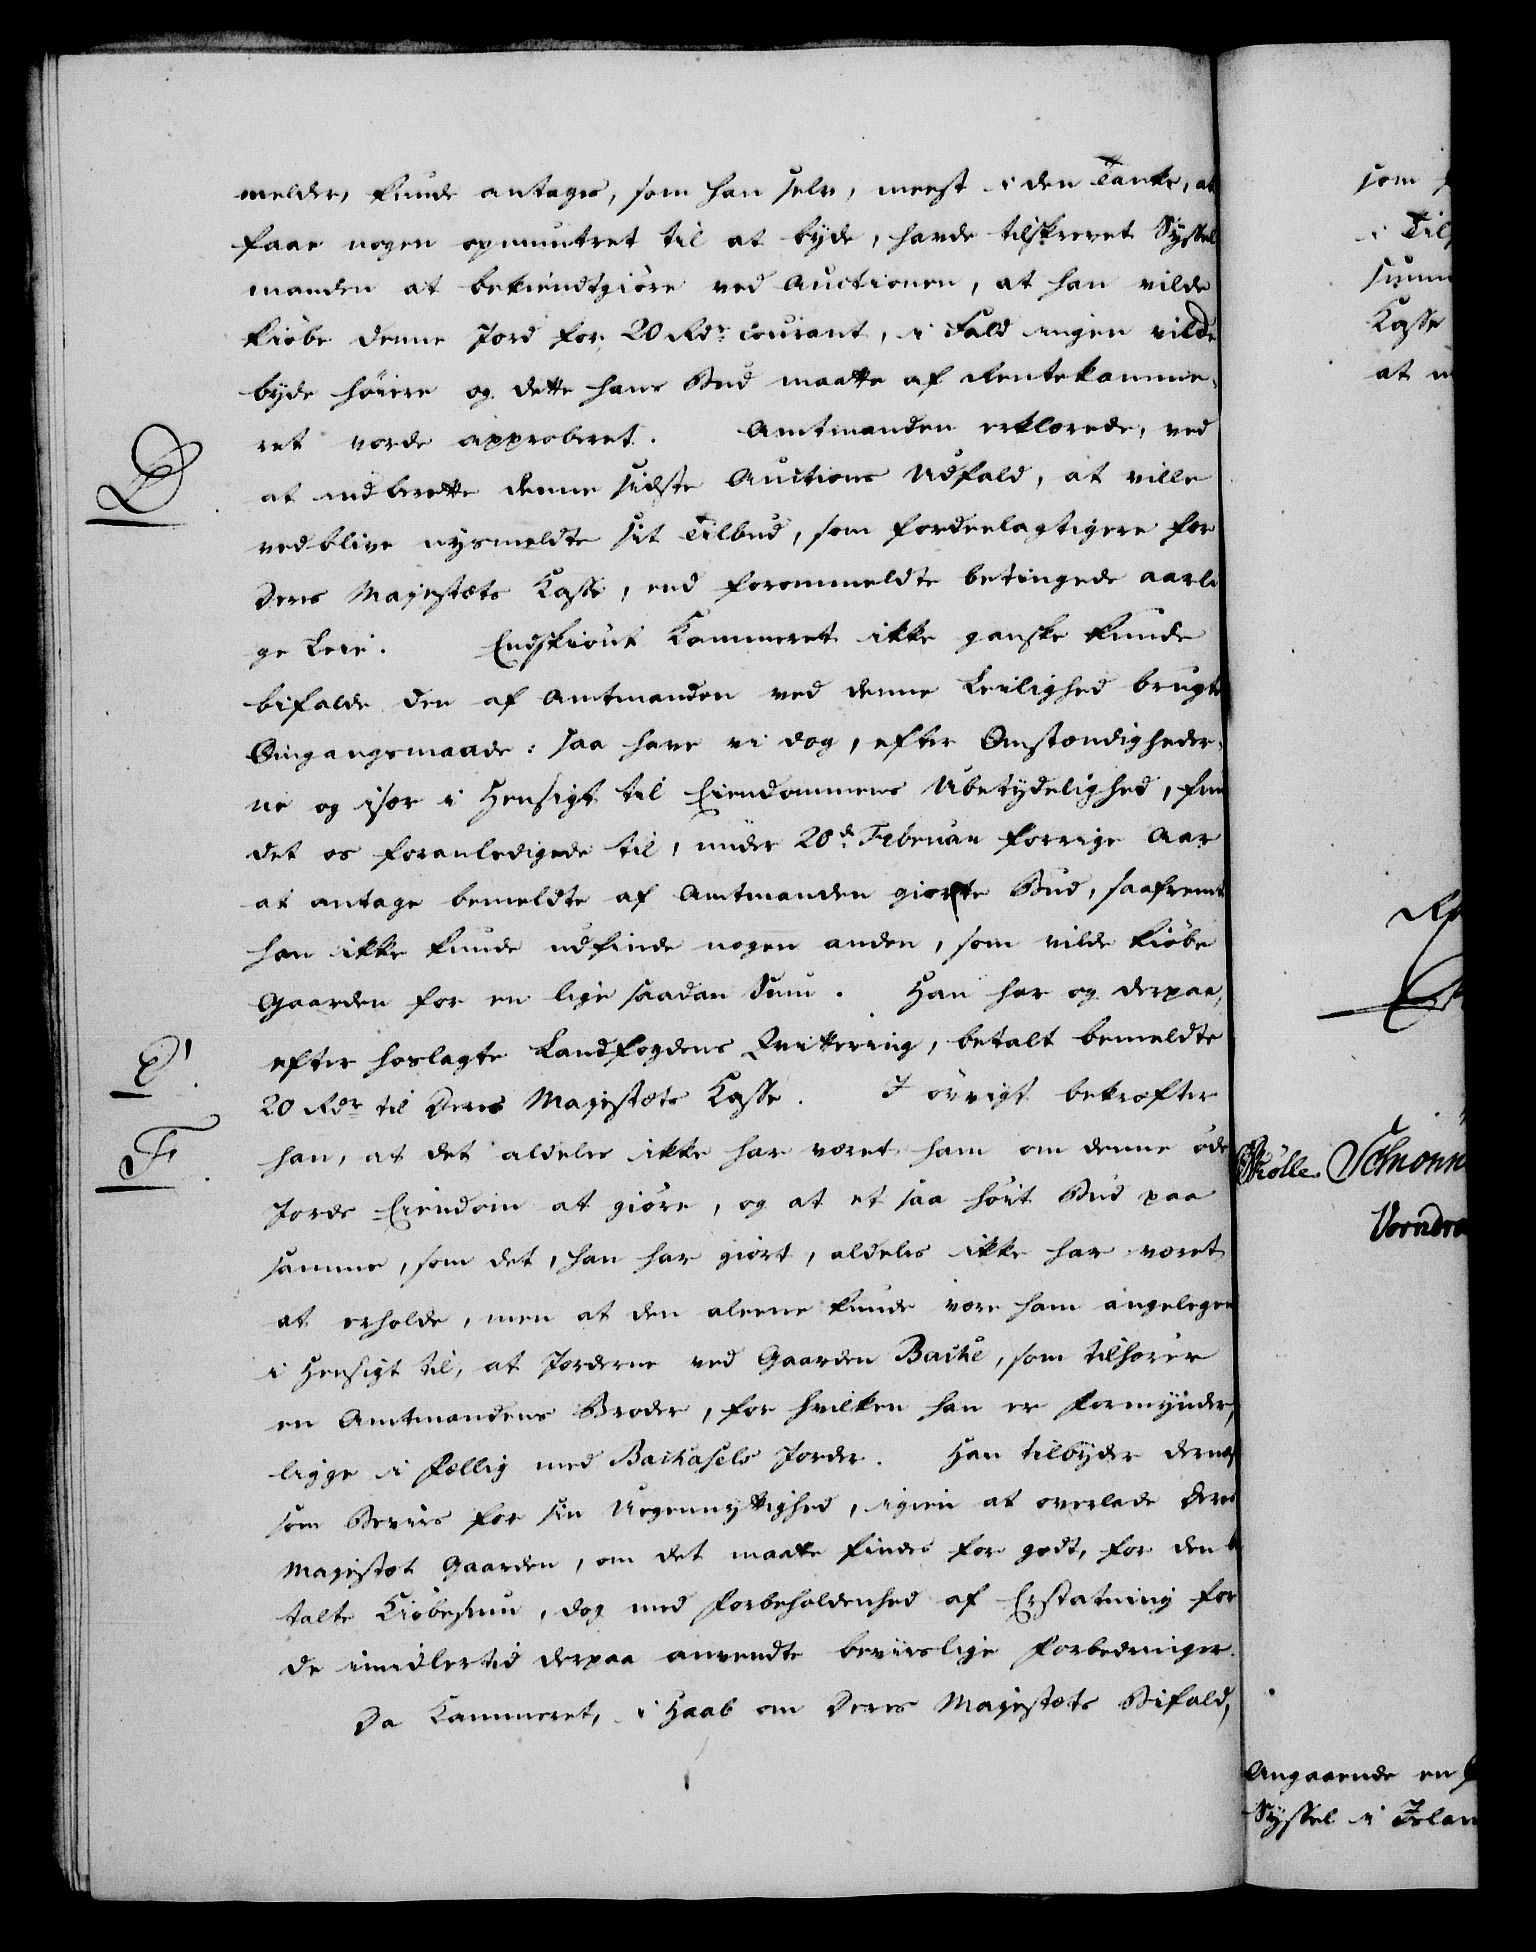 melder, kunde antages, som han selv, meest i den Tanke, at
faae nogen opmuntret til at byde, havde tilskrevet Syssel
manden at bekiendtgiöre ved Auctionen, at han vilde
kiöbe denne Jord for 20 Rdr courant, i Fald ingen vilde
byde höiere og dette hans Bud maatte af Rentekamme-
ret vorde approberet. Amtmanden erklærede, ved
D.
at indberette denne sidste Auctions Udfald, at ville
vedblive nysmeldte sit Tilbud, som fordeelagtigere for
Deres Majestæts Kasse, end forommeldte betingede aarli
ge Leie. Endskiönt Kammeret ikke ganske kunde
bifalde den af Amtmanden ved denne Leilighed brugte
Omgangsmaade: saa have vi dog, efter Omstændigheder-
ne og især i Hensigt til Eiendommens Ubetydelighed, fun
det os foranledigede til, under 20d Februar forrige Aar
at antage bemeldte af Amtmanden giorte Bud, saafremt
han ikke kunde udfinde nogen anden, som vilde kiöbe
Gaarden for en lige saadan Sum. Han har og derpaa,
E.
efter hoslagte Landfogdens Qvittering, betalt bemeldte
20 Rdr til Deres Majestæts Kasse. I övrigt bekræfter
F.
han, at det aldeles ikke har været ham om denne öde
Jords Eiendom at giöre, og at et saa höit Bud paa
samme, som det, han har giort, aldeles ikke har været
at erholde, men at den aleene kunde være ham angelegen
i Hensigt til, at Jorderne ved Gaarden Bakke, som tilhörer
en Amtmandens Broder, for hvilken han er Formynder,
ligge i Fællig med Bakkasels Jorder. Han tilbyder dernæst
som Beviis for sin Uegennyttighed, igien at overlade Deres
Majestæt Gaarden, om det maatte findes for godt, for den be
talte Kiöbesum, dog med Forbeholdenhed af Erstatning for
de imidlertid derpaa anvendte beviislige Forbedringer.
Da Kammeret, i Haab om Deres Majestæts Bifald,
som
i
Kasse
at
Schönn
Angaaende en
Syssel i Islan